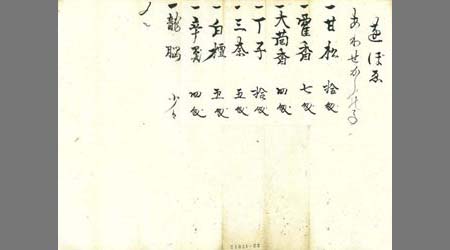 あわせ
一甘松 拾匁
一藿香 七匁
一大茴香 四匁
一丁子 拾匁
一三奈 五匁
一白檀 五匁
一辛夷 四匁
一龍脳 少々